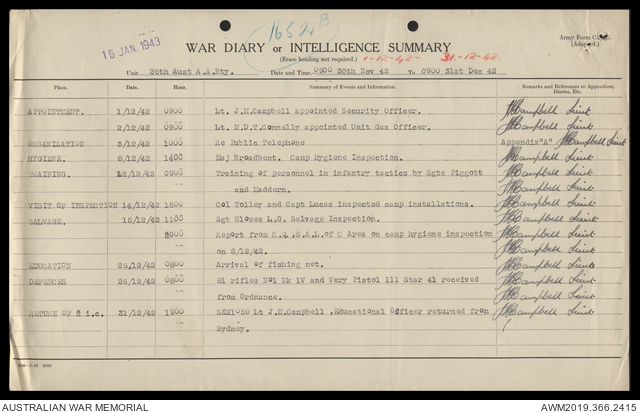 16 JAN. 1943
1652B
Army Form C.
(Adapted.)
WAR DIARY or INTELLIGENCE SUMMARY
(Erase heading not required.)
1-12-42 - 31-12-42.
Unit 26th Aust A.A.Bty. Date and Time 0900 30th Nov 42 To 0900 31st Dec 42
Place. Date Hour. Summary of Events and Information. Remarks and References to Appendices, Diaries, Etc.
APPOINTMENT. 1/12/42 0900 Lt. J.M.Campbell appointed Security Officer. Campbell Lieut
2/12/42 0900 Lt. M.D.T.Connelly appointed Unit Gas Officer. Campbell Lieut
ORGANIZATION 3/12/42 1000 Re Public Telephone Appendix "A" Campbell Lieut
HYGIENE. 8/12/42 1400 Maj Broadbent. Camp Hygiene Inspection. Campbell Lieut
TRAINING. 12/12/42 0900 Training of personnel in infantry tactics by Sgts Piggott Campbell Lieut
and Maddern. Campbell Lieut
VISIT OF INSPECTION 14/12/42 1500 Col Tolley and Capt Lucas inspected camp installations. Campbell Lieut
SALVAGE. 15/12/42 1100 Sgt Blowes L.G. Salvage Inspection. Campbell Lieut
2000 Report from H.Q. S.A.L. of C Area on camp hygiene inspection Campbell Lieut
on 8/12/42. Campbell Lieut
EDUCATION 26/12/42 0800 Arrival of fishing net. Campbell Lieut
DEFENCES 26/12/42 0800 81 rifles No1 Mk IV and Very Pistol 111 Star 41 received Campbell Lieut
from Ordnance. Campbell Lieut
RETURN OF 2 i.c. 31/12/42 1900 SX21059 Lt J.M.Campbell ,Educational Officer returned from Campbell Lieut
Sydney.
AUSTRALIAN WAR MEMORIAL
AWM2019.366.2415